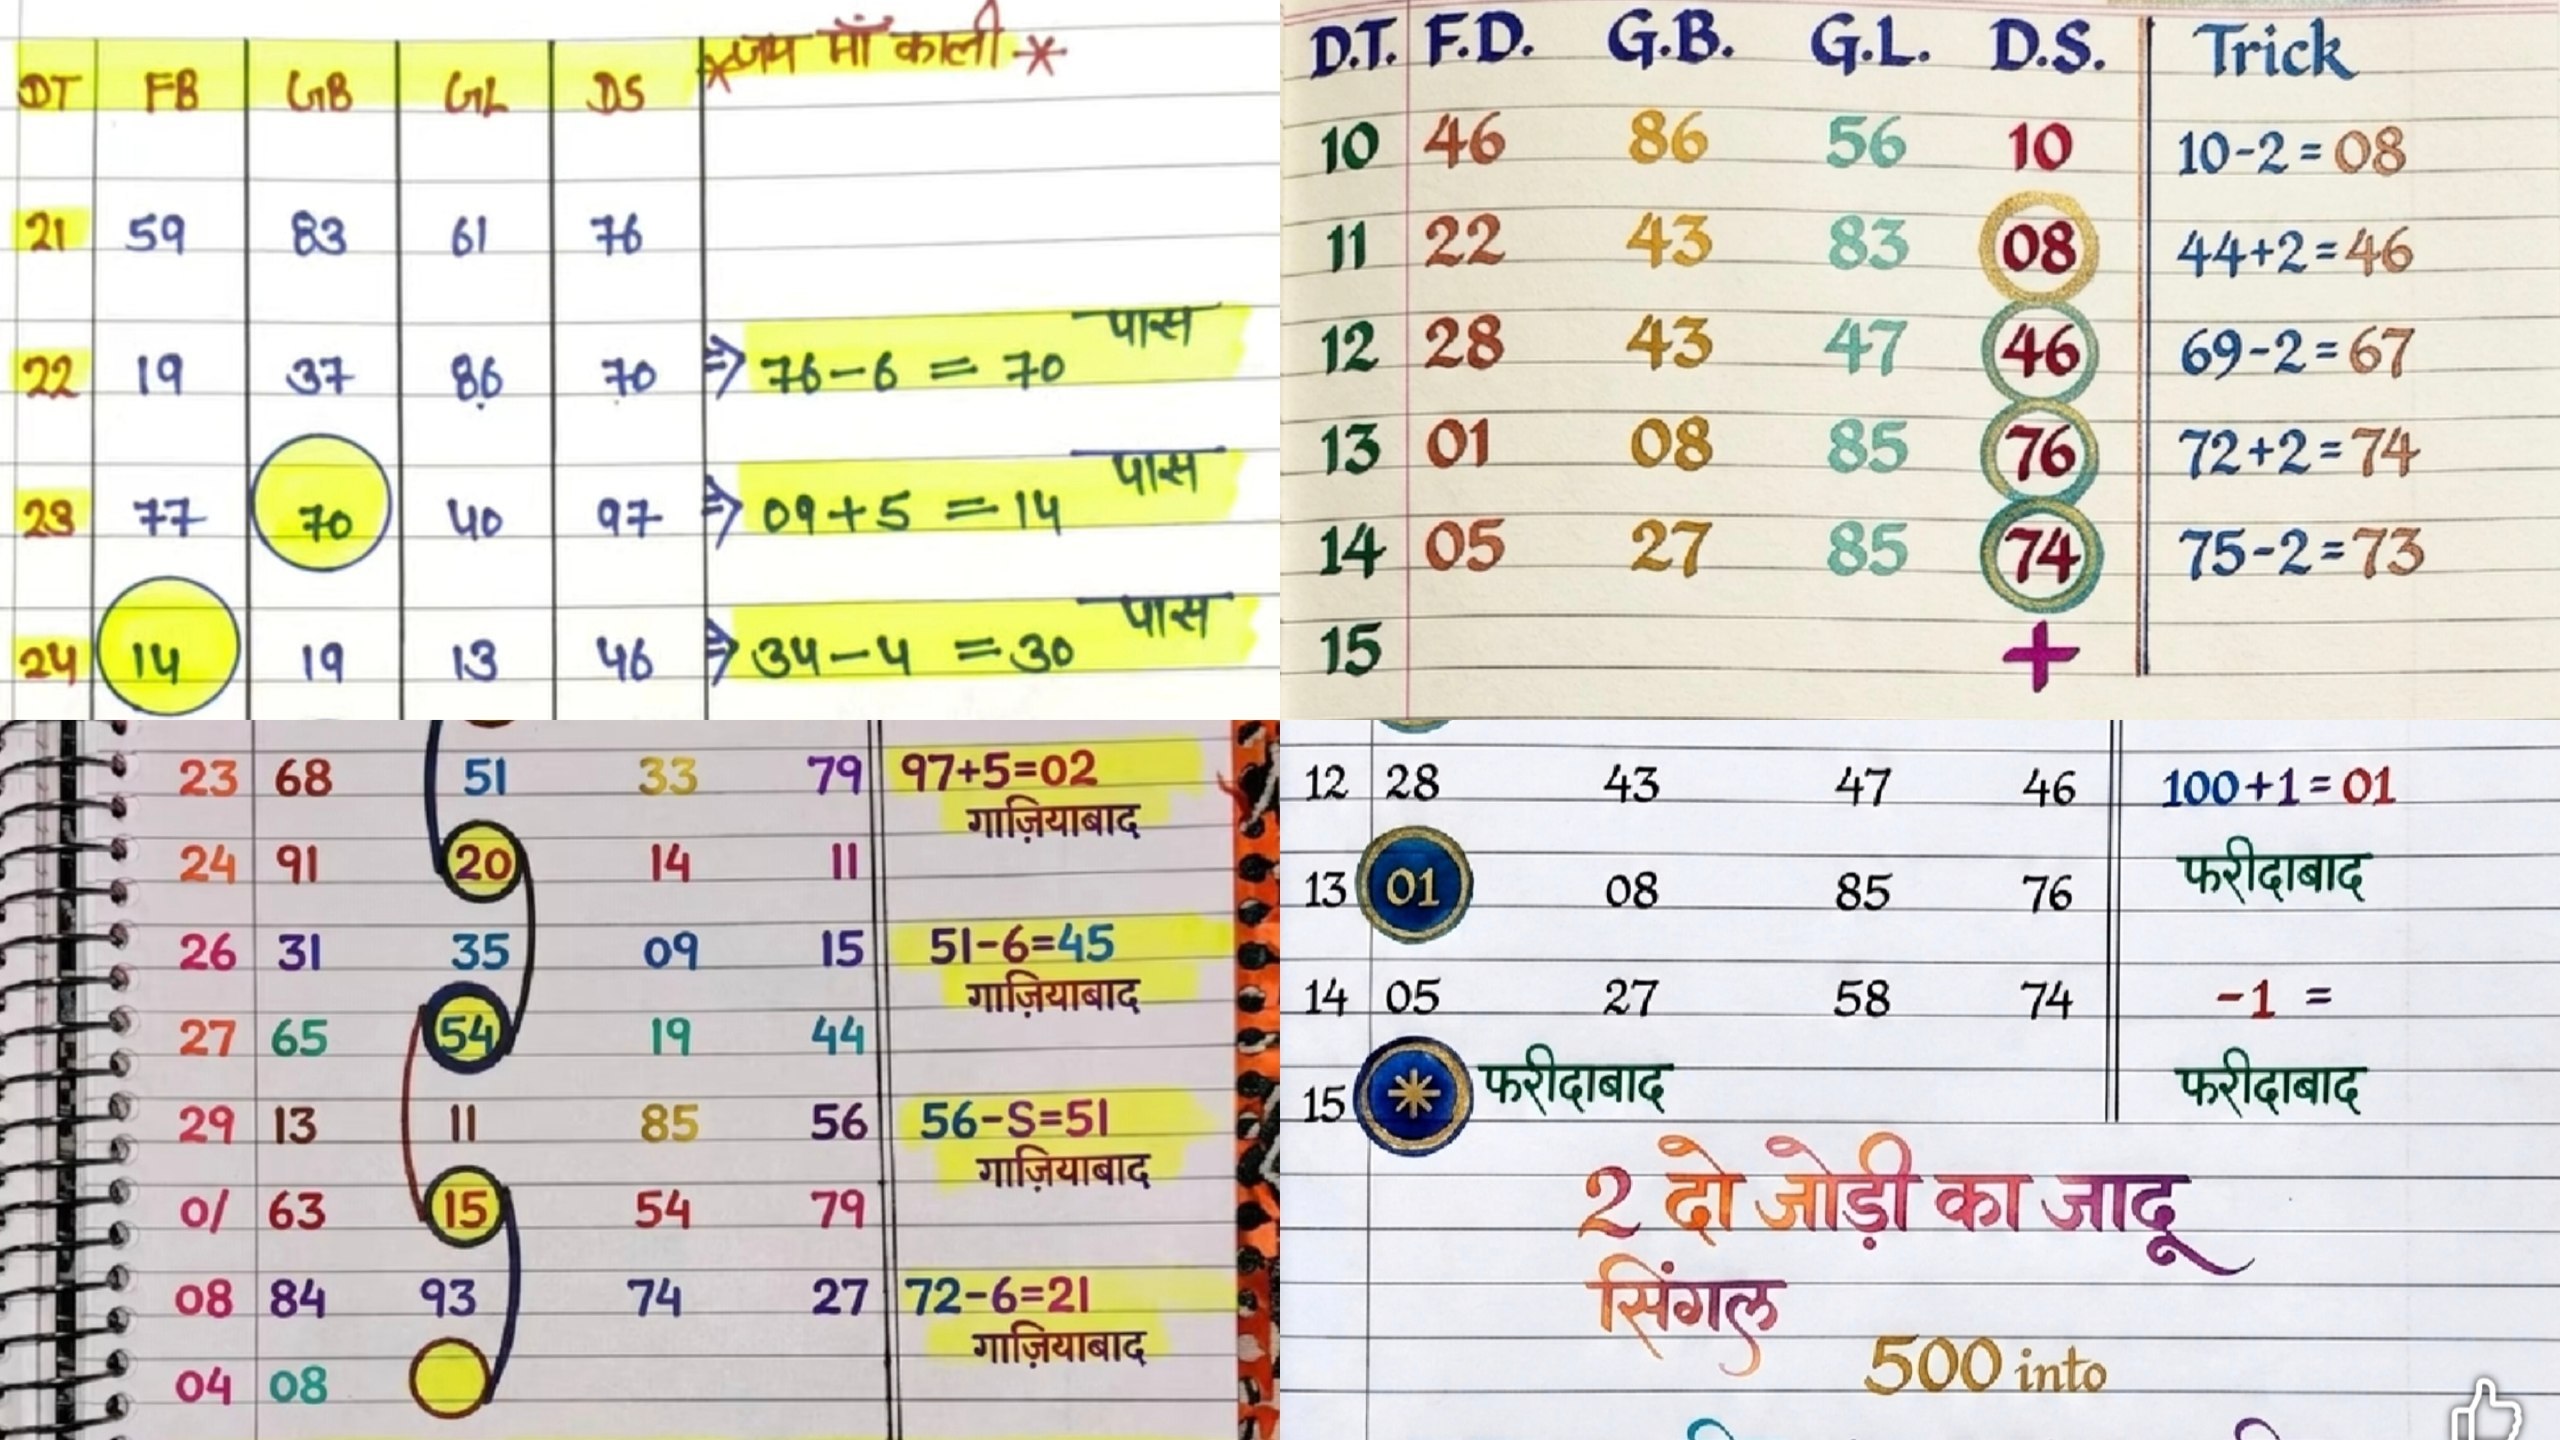 DT FB GB GL DS *जय माँ काली*
21 59 83 61 76
पास
22 19 37 86 70 ⇒ 76-6 = 70
पास
23 77 70 40 97 ⇒ 09+5 = 14
पास
24 14 19 13 46 ⇒ 34-4 = 30
D.T. F.D. G.B. G.L. D.S. Trick
10 46 86 56 10 10-2=08
11 22 43 83 08 44+2=46
12 28 43 47 46 69-2=67
13 01 08 85 76 72+2=74
14 05 27 85 74 75-2=73
15 +
23 68 51 33 79 97+5=02
गाज़ियाबाद
24 91 20 14 11
26 31 35 09 15 51-6=45
गाज़ियाबाद
27 65 54 19 44
29 13 11 85 56 56-S=51
गाज़ियाबाद
0/ 63 15 54 79
08 84 93 74 27 72-6=21
गाज़ियाबाद
04 08
12 28 43 47 46 100+1=01
फरीदाबाद
13 01 08 85 76
14 05 27 58 74 -1 =
15 * फरीदाबाद फरीदाबाद
2 दो जोड़ी का जादू
सिंगल
500 into